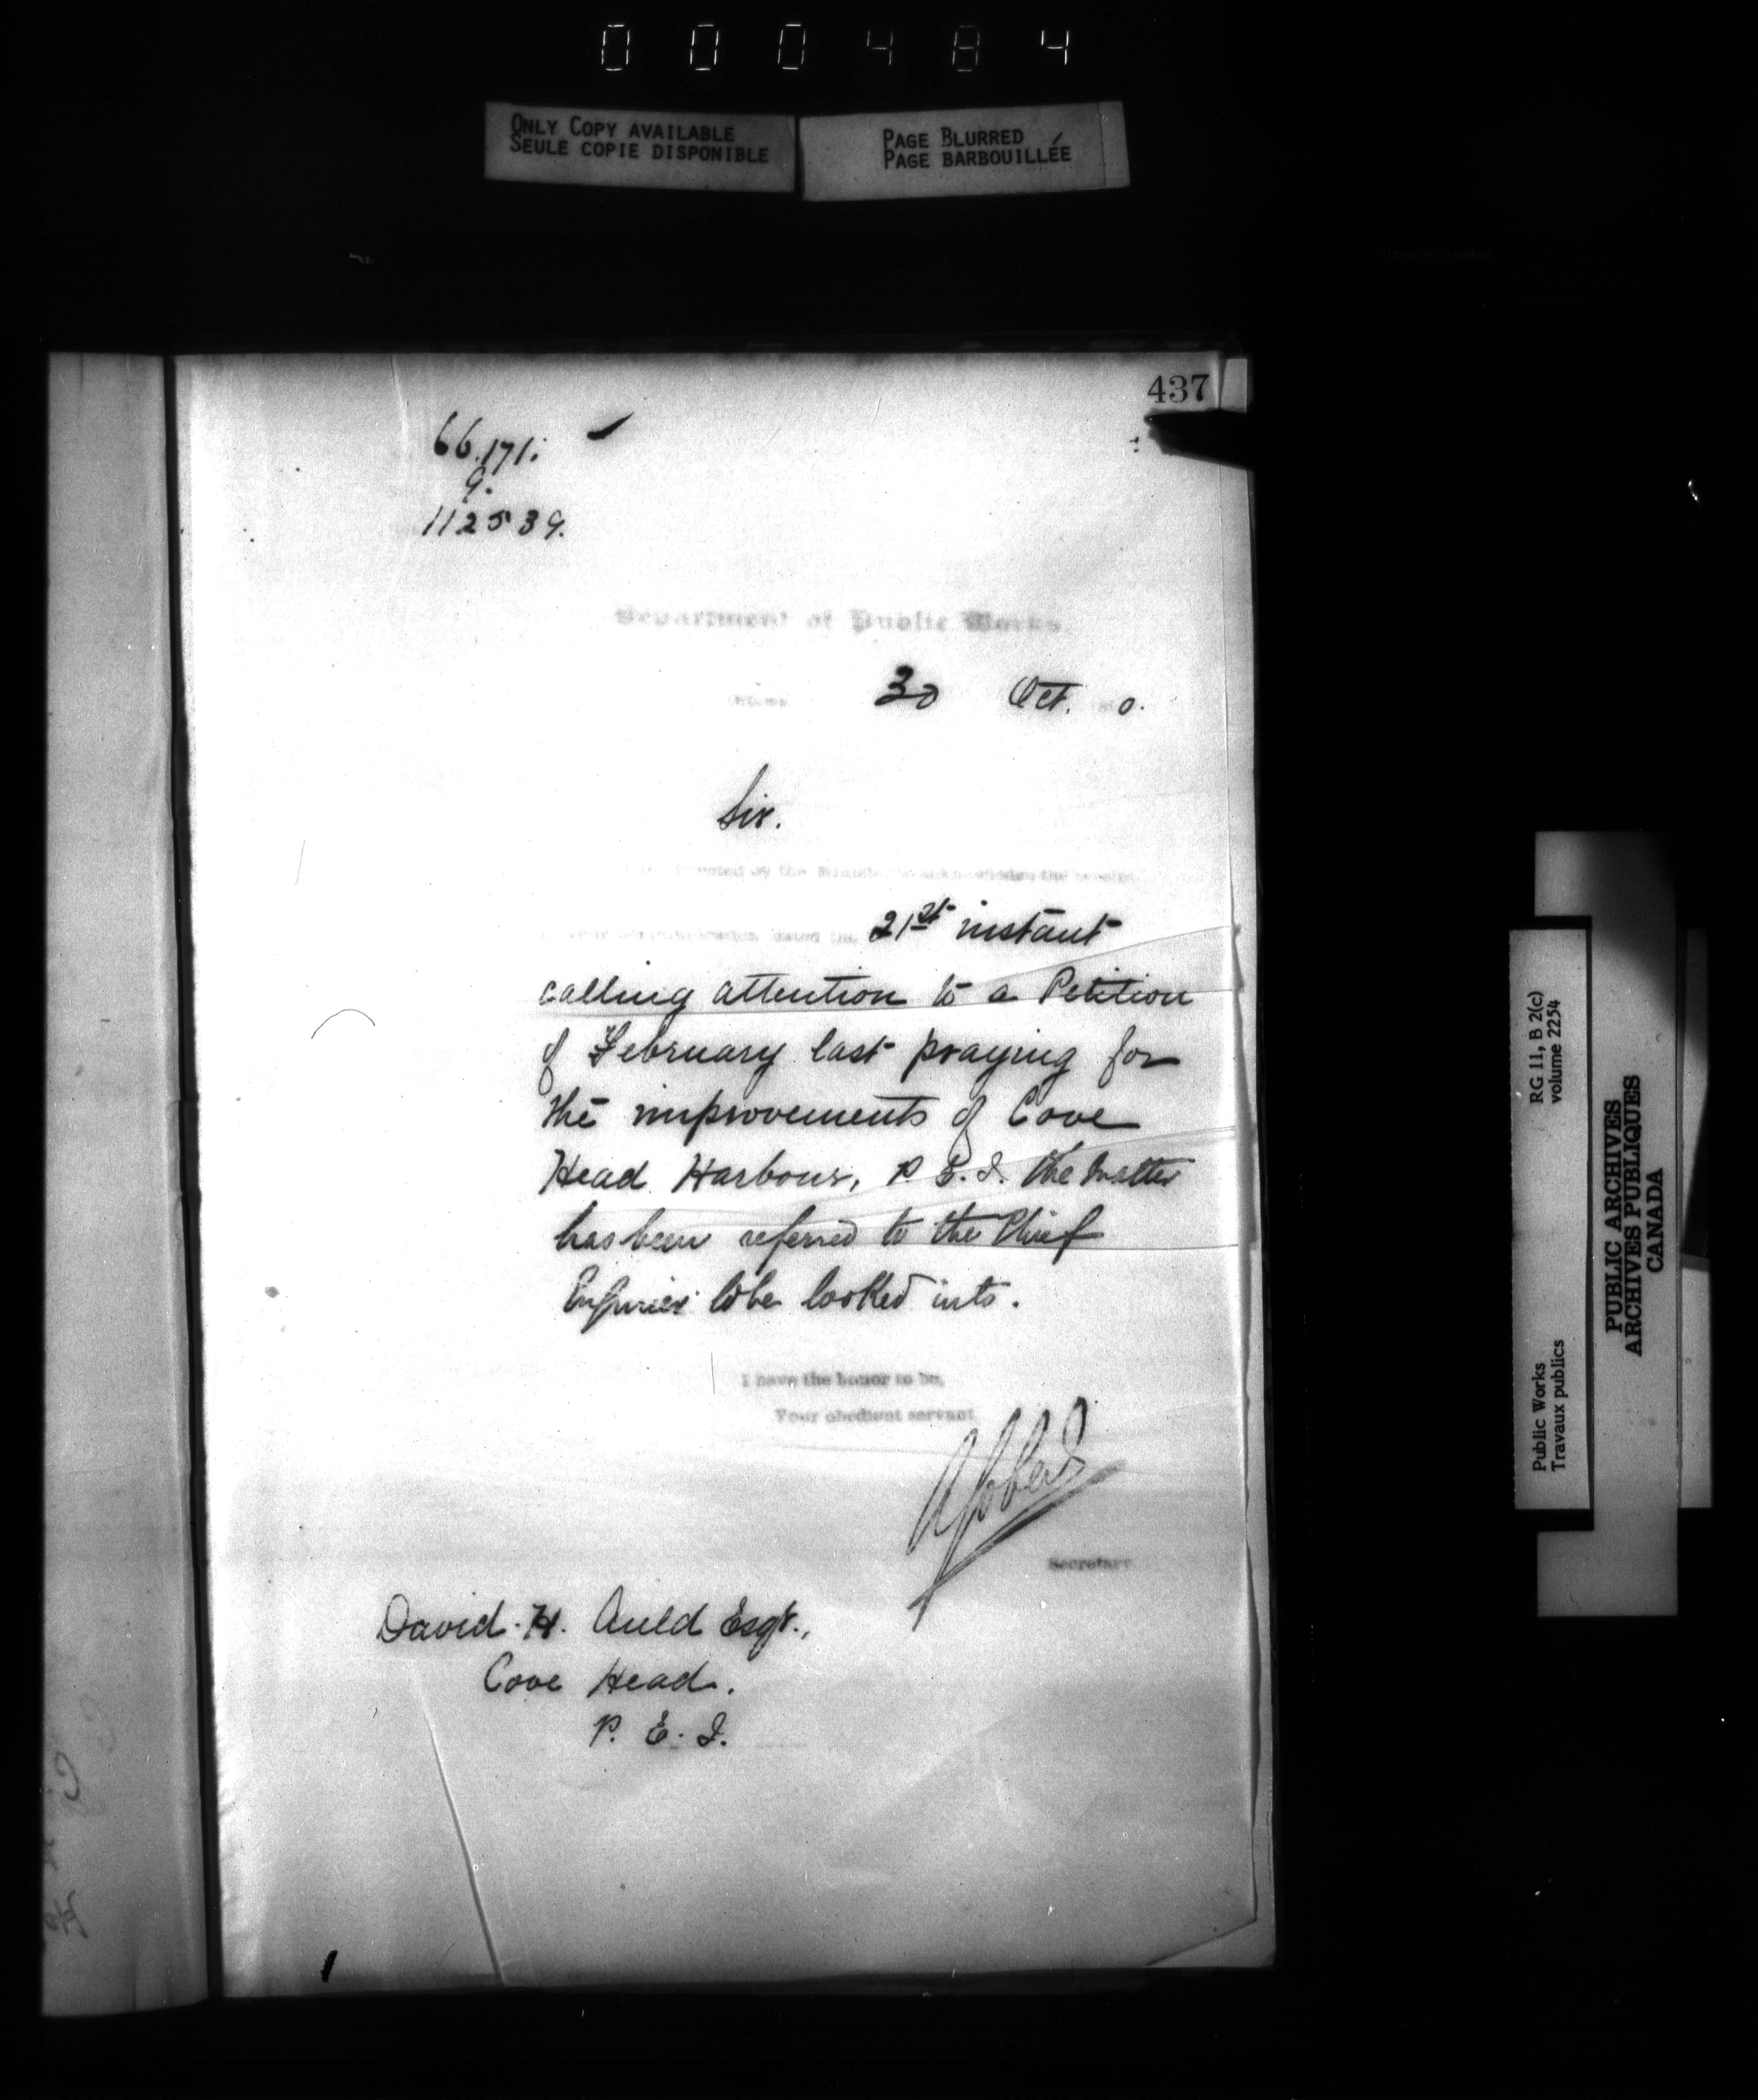 000484
ONLY COPY AVAILABLE
SEULE COPIE DISPONIBLE
PAGE BLURRED
PAGE BARBOUILLÉE
437
66.171.
9.
112539.
Department of Public Works.
Ottawa 30 Oct. 0.
Sir.
directed by the Minister to acknowledge the receipt
your communication, dated the 21st instant
calling attention to a Petition
of February last praying for
the improvements of Cove
Head Harbour, P.E.I. the matter
has been referred to the Chief
Engineer to be looked into.
I have the honor to be,
Your obedient servant
Secretary
David. H. Auld Esqr.,
Cove Head.
P. E. I.
Public Works
Travaux publics
RG 11, B 2(c)
volume 2254
PUBLIC ARCHIVES
ARCHIVES PUBLIQUES
CANADA